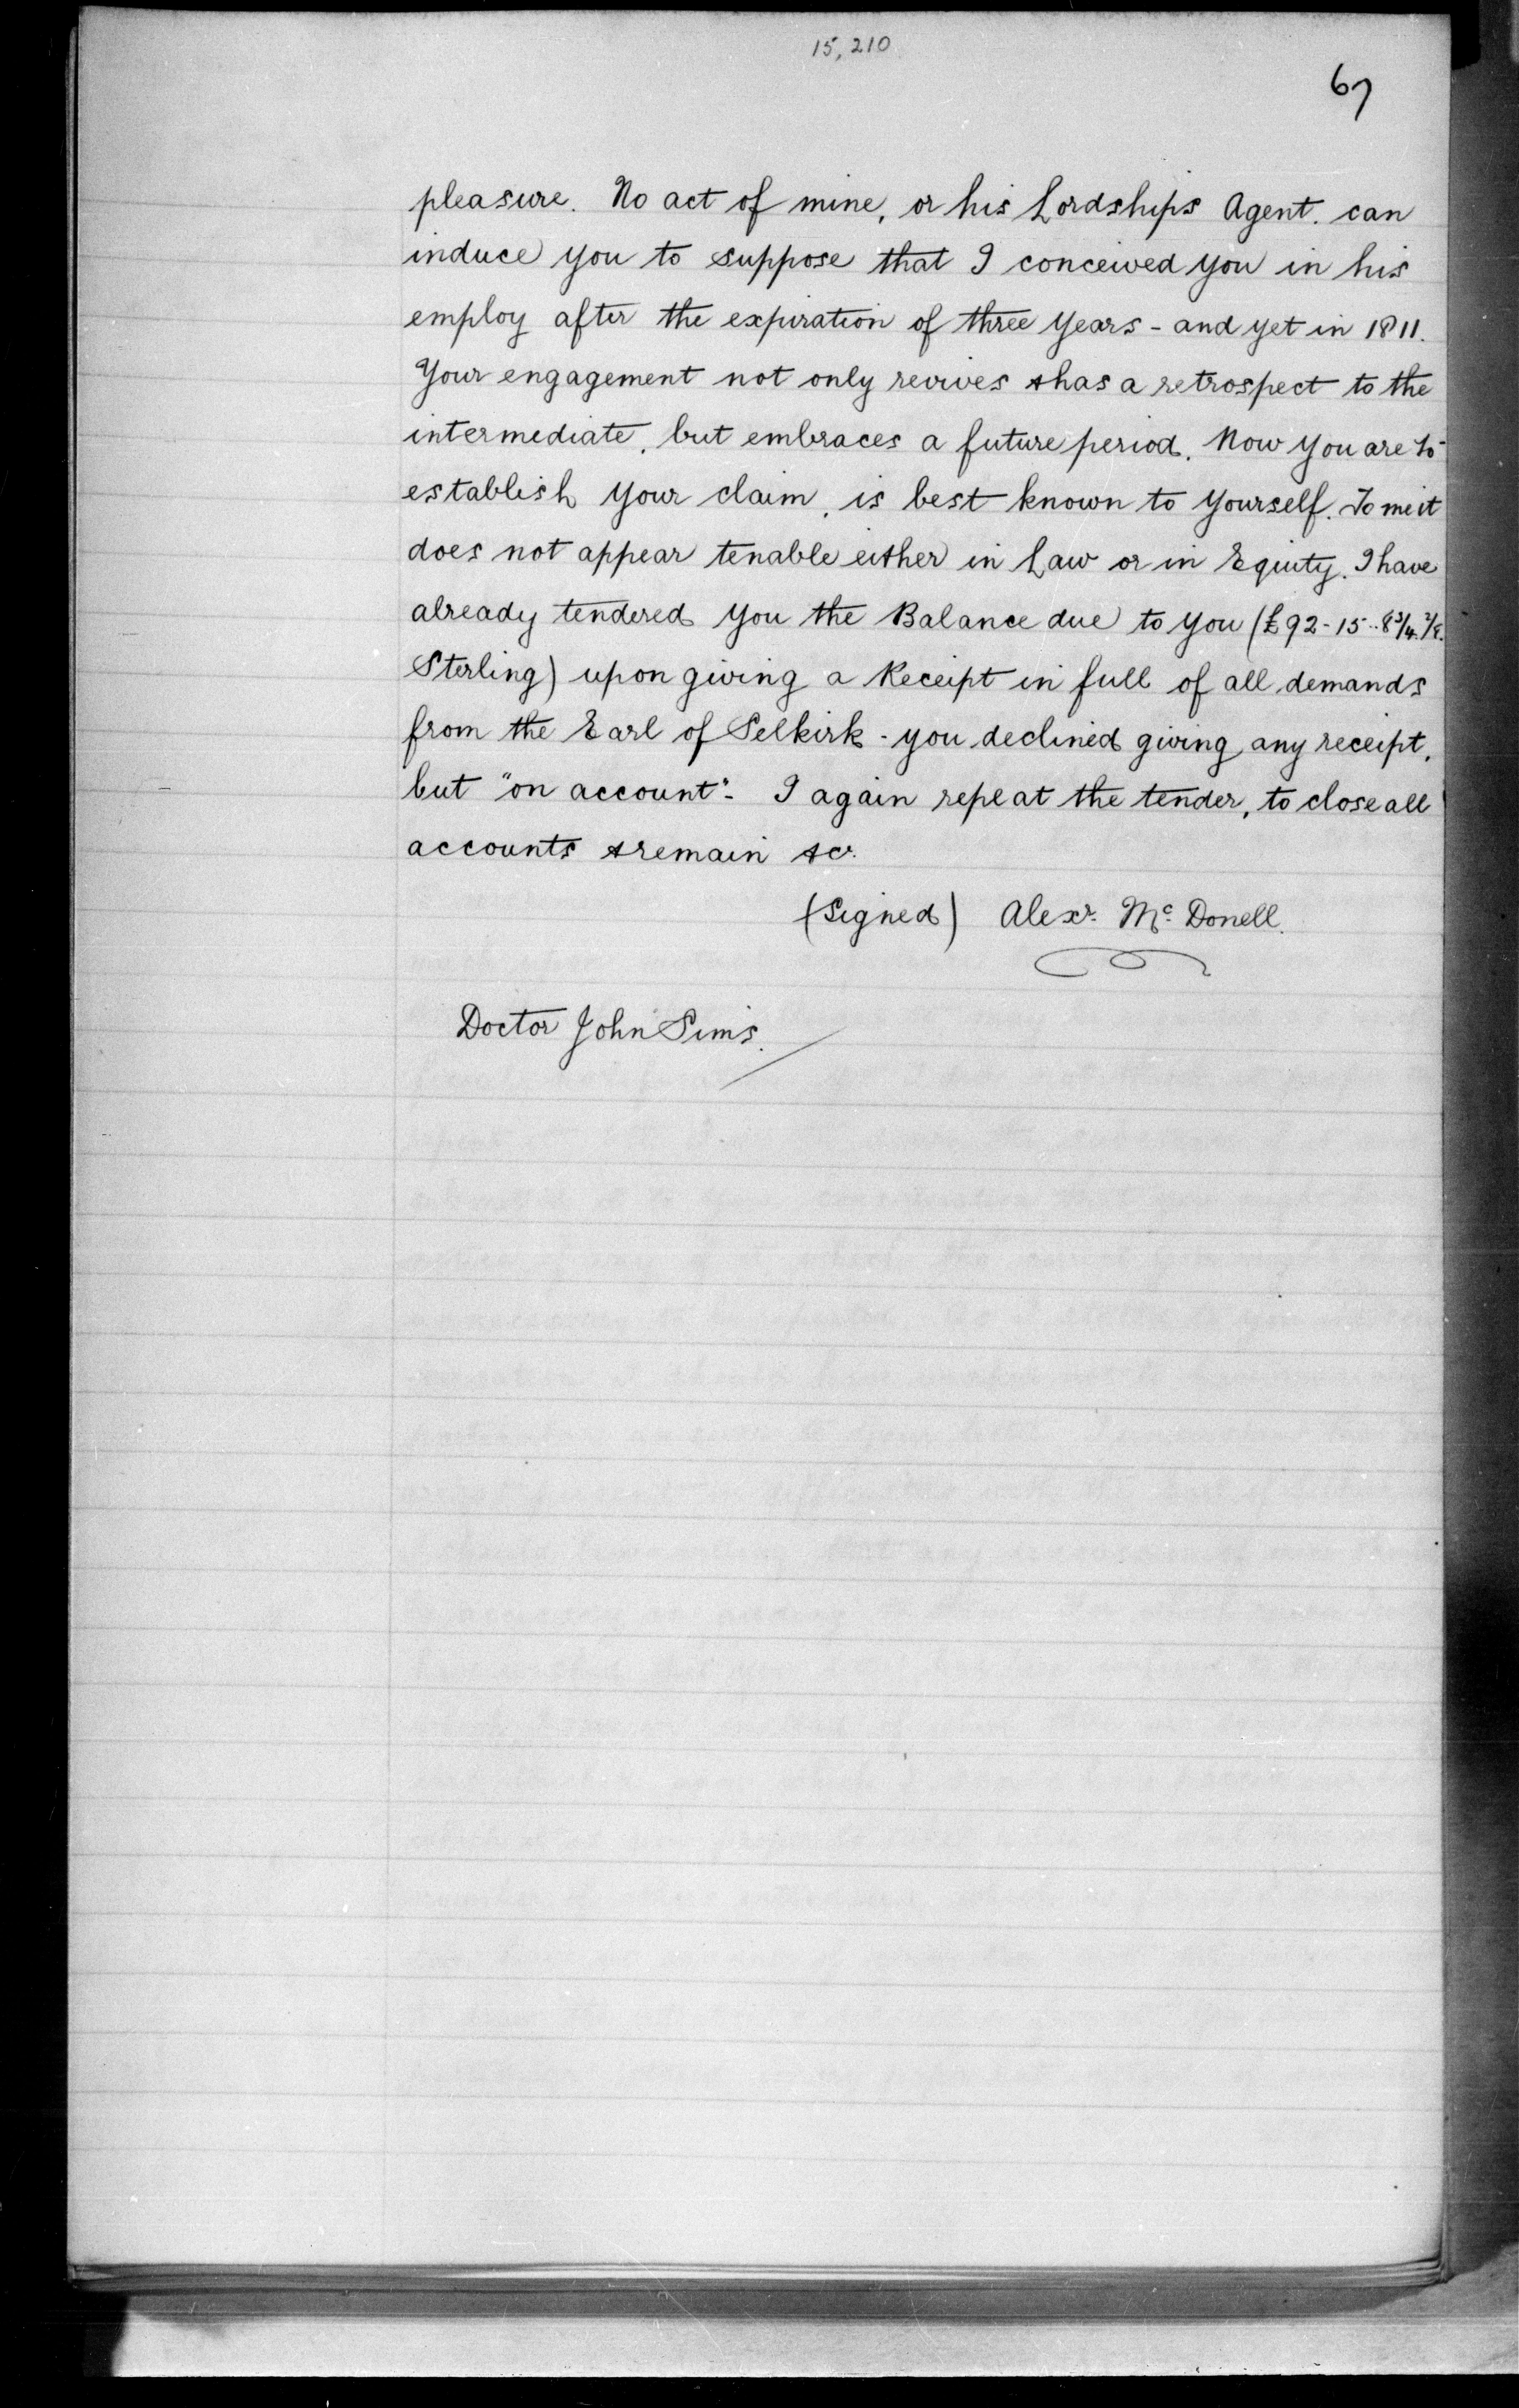 15,210
67
pleasure. No act of mine, or his Lordship's Agent. can
induce you to suppose that I conceived you in his
employ after the expiration of three years - and yet in 1811.
Your engagement not only revives & has a retrospect to the
intermediate, but embraces a future period. Now you are to
establish your claim, is best known to yourself. To me it
does not appear tenable either in Law or in Equity. I have
already tendered you the Balance due to you (£92-15..8 3/4. 7/8.
Sterling) upon giving a Receipt in full of all demands
from the Earl of Selkirk - you declined giving any receipt,
but "on account" - I again repeat the tender, to close all
accounts & remain &c.
(Signed) Alexr. Mc. Donell.
Doctor John Sims.